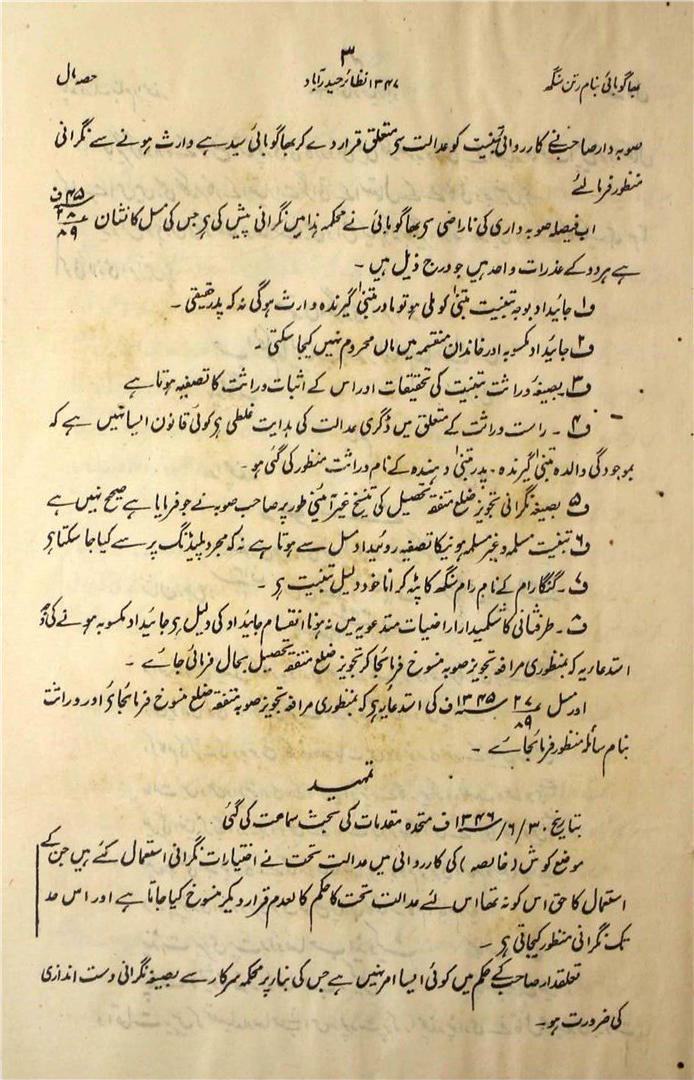 ۳
بھاگو بائی بنام رتن سنگھ ۱۳۴۷ نظائر حیدرآباد حصہ مال
صوبہ دار صاحب نے کارروائی تبنیت کو عدالت سے متعلق قرار دے کر بھاگو بائی سید ہے وارث ہونے سے نگرانی
منظور فرمائے
اب فیصلہ صوبہ داری کی ناراضی سے بھاگو بائی نے محکمہ ہذا میں نگرانی پیش کی ہے جس کی مسل کا نشان ۲۸/۸۹ ۴۵ف
ہے ہر دو کے عذرات واحد ہیں جو درج ذیل ہیں ۔
ف۱ جائیداد بوجہ تبنیت متبنیٰ کو ملی ہو تو مادر متبنیٰ گیرندہ وارث ہوگی نہ کہ پدر حقیقی ۔
ف۲ جائیداد مکسوبہ اور خاندان منقسمہ میں ماں محروم نہیں کیجا سکتی ۔
ف۳ بصیغہ وراثت تبنیت کی تحقیقات اور اس کے اثبات وراثت کا تصفیہ ہوتا ہے
ف۴ ۔ راست وراثت کے متعلق میں ڈگری عدالت کی ہدایت غلطی ہے کوئی قانون ایسا نہیں ہے کہ
بموجودگی والدہ متبنیٰ گیرندہ ۔ پدر متبنیٰ دہندہ کے نام وراثت منظور کی گئی ہو ۔
ف۵ بصیغہ نگرانی تجویز ضلع متفقہ تحصیل کی تنسیخ غیر آئینی طور پر صاحب صوبہ نے جو فرمایا ہے صحیح نہیں ہے
ف۶ تبنیت مسلمہ و غیر مسلمہ ہونیکا تصفیہ روئیداد مسل سے ہوتا ہے نہ کہ مجرد پلیڈنگ پر سے کیا جا سکتا ہے
ف۷ ۔ گنگا رام کے نام رام سنگھ کا پٹہ کرانا خود دلیل تبنیت ہے ۔
ف۸ ۔ طرفثانی کا شکمیدار اراضیات متدعویہ میں نہ ہونا انقسام جائیداد کی دلیل ہے جائیداد مکسوبہ ہونے کی
استدعا یہ کہ بمنظوری مرافعہ تجویز صوبہ منسوخ فرمائی جا کر تجویز ضلع متفقہ تحصیل بحال فرمائی جائے ۔
اور مسل ۲۷/۸۹ ۱۳۴۵ف کی استدعا یہ ہے کہ بمنظوری مرافعہ تجویز صوبہ متفقہ ضلع منسوخ فرمائی جائے اور وراثت
بنام سائلہ منظور فرمائی جائے ۔
تمہید
بتاریخ ۳۰/۶/۱۳۴۶ف متحدہ مقدمات کی بحث سماعت کی گئی
موضع کوش (خالصہ) کی کارروائی میں عدالت تحت نے اختیارات نگرانی استعمال کئے ہیں جن کے
استعمال کا حق اس کو نہ تھا اس لئے عدالت تحت کا حکم کالعدم قرار دیکر منسوخ کیا جاتا ہے اور اس حد
تک نگرانی منظور کیجاتی ہے ۔
تعلقدار صاحب کے حکم میں کوئی ایسا امر نہیں ہے جس کی بنا پر محکمہ سرکار سے بصیغہ نگرانی دست اندازی
کی ضرورت ہو ۔